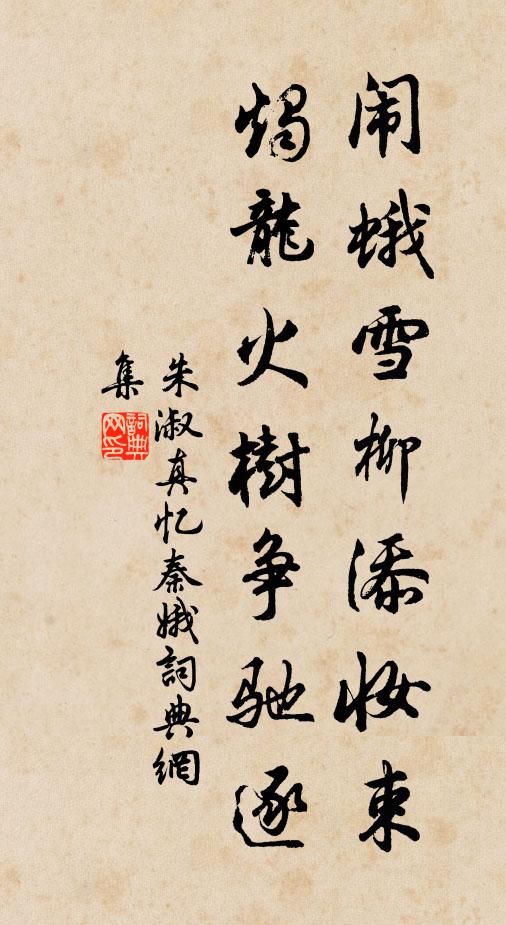 闹蛾雪柳添妆束
烛龍火樹争驰逐
朱淑真忆秦娥詞典網
集
詞典网印